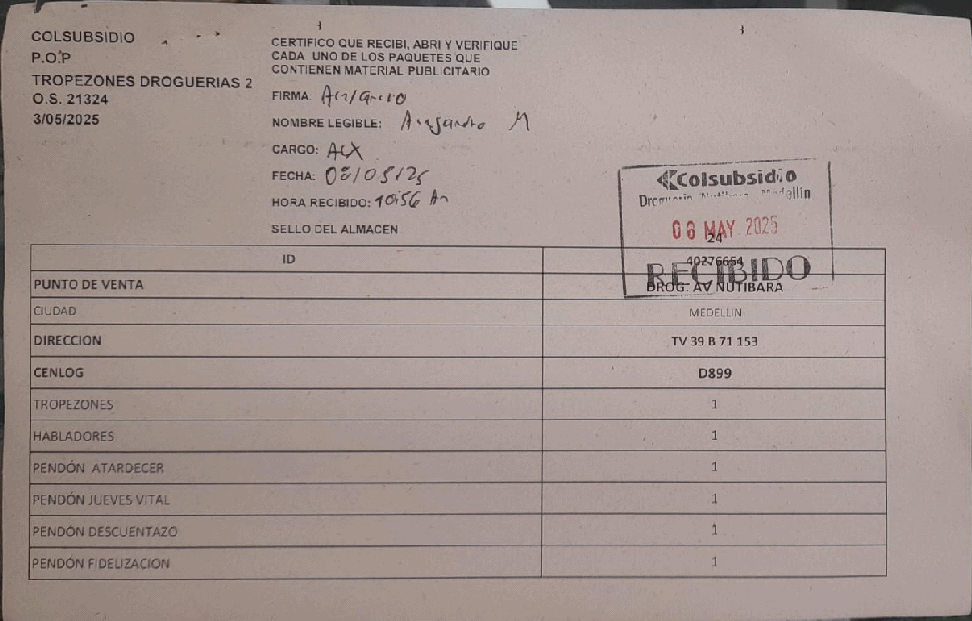 COLSUBSIDIO
P.O.P
TROPEZONES DROGUERIAS 2
O.S. 21324
3/05/2025
CERTIFICO QUE RECIBI, ABRI Y VERIFIQUE
CADA UNO DE LOS PAQUETES QUE
CONTIENEN MATERIAL PUBLICITARIO
FIRMA:
NOMBRE LEGIBLE: M
CARGO:
FECHA: 08/05/25
HORA RECIBIDO: 10:56 Am
SELLO DEL ALMACEN
Colsubsidio
Medellín
MAY 2025
RECIBIDO
24
ID 40276664
PUNTO DE VENTA DROG. AV NUTIBARA
CIUDAD MEDELLIN
DIRECCION TV 39 B 71 153
CENLOG D899
TROPEZONES 1
HABLADORES 1
PENDÓN ATARDECER 1
PENDÓN JUEVES VITAL 1
PENDÓN DESCUENTAZO 1
PENDÓN FIDELIZACION 1